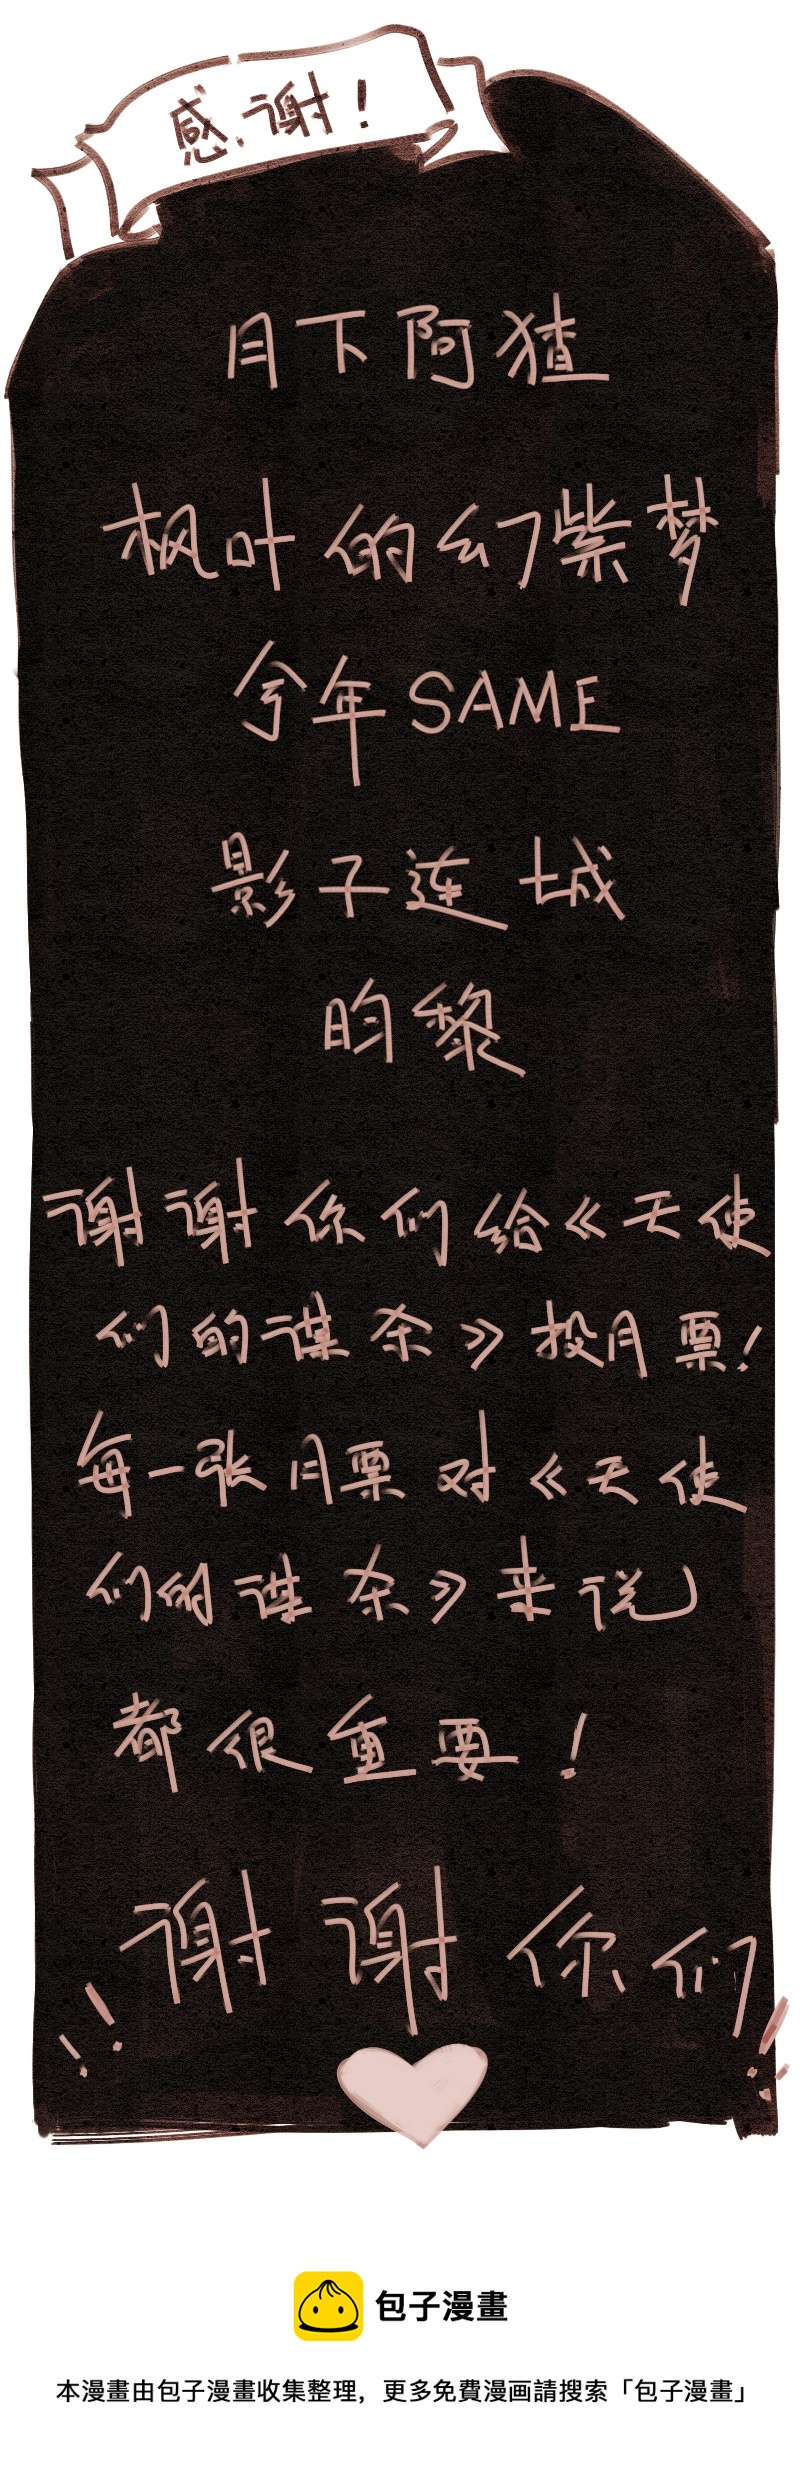 感谢!
月下阿猹
枫叶的幻紫梦
今年SAME
影子连城
昀黎
谢谢你们给《天使
们的谋杀》投月票!
每一张月票对《天使
们的谋杀》来说
都很重要!
谢谢你们
包子漫畫
本漫畫由包子漫畫收集整理，更多免費漫画請搜索「包子漫畫」